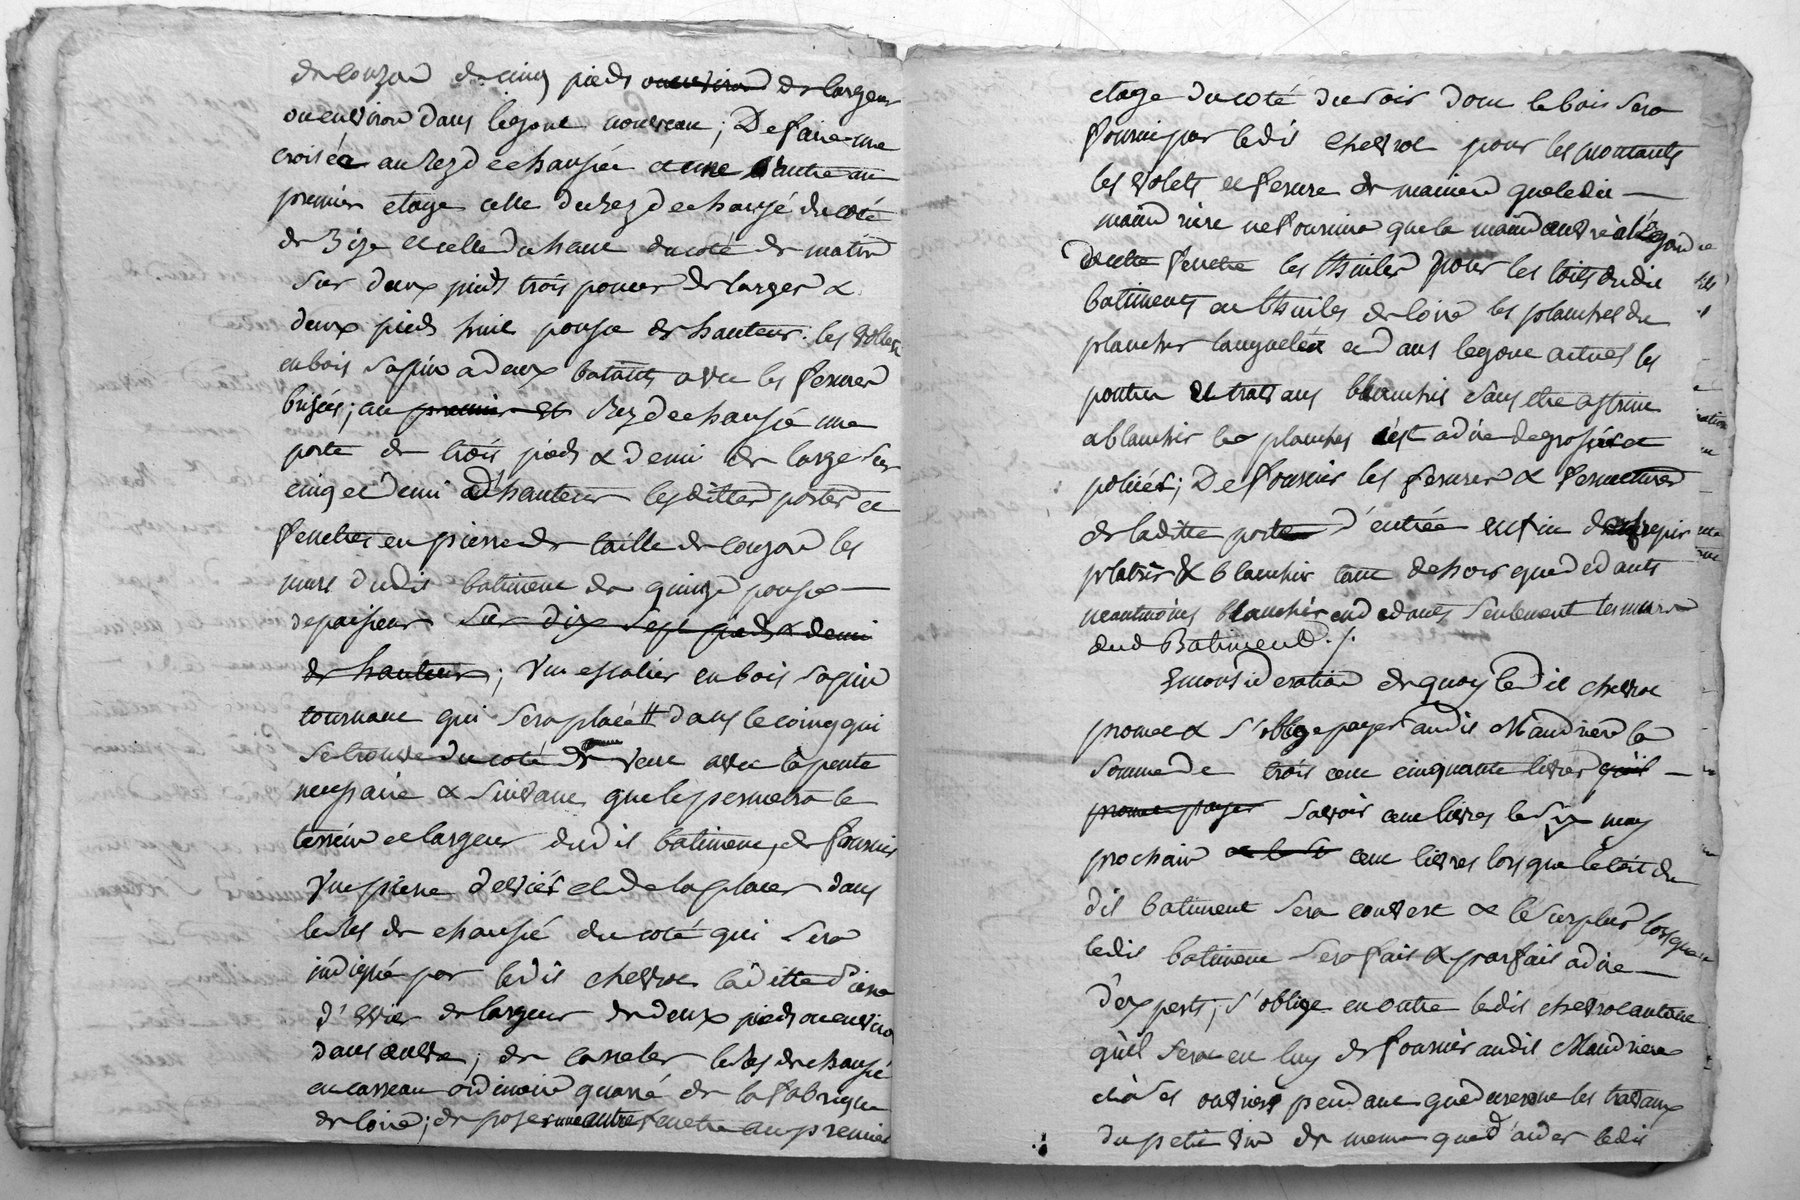 de Couzon de cinq pieds ou environ de largeur
ou environ dans legout nouveau ; De faire une
croisée au Rez de chaussée et une autre au
premier etage celle du rez de chaussé du coté
de Bize et celle du haut du coté de matin
sur deux pieds trois pouces de larger &
deux pieds huit pouse de hauteur ; les vollets
en bois sapin a deux batants avec les ferures
brisées ; au premier et Rez de chaussé une
porte de trois pieds & demi de large sur
cinq et demi de hauteur lesdittes portes et
fenetres en pierre de taille de Couzon les
murs dudit batiment de quinze pouse
depaisseur sur dix sept pieds & demi
de hauteur ; Un escalier en bois sapin
tournant qui sera placé dans le coing qui
se trouve du coté de vent avec la pente
necessaire & suivant que le permettra le
terrein et largeur dudit batiment, de fournir
Une pierre devier et de la placer dans
le Rés de chaussé du coté qui sera
indiqué par ledit chevrot laditte pierre
d'evier de largeur de deux pieds ou environ
dans œuvre ; de carreler le Rés de chaussé
en carreau ordinaire quarré de la fabrique
de loire ; de poser une autre fenetre au premier
etage du coté du soir dont le bois sera
fourni par ledit Chevrot pour les montants
les volets et ferure de maniere que ledit
maindriere ne fournira que la maind œuvre à l'égard
de cette fenetre les thuiles pour les toits dudit
batiments en thuiles de loire les planches du
plancher languetées et dans legout actuel les
poutres et travans blanchis sans etre astreint
a blanchir les planches c'est adire degrossies et
polies ; De fournir les ferures & fermetures
de laditte porte d'entrée enfin de crepir
platrir & blanchir tant dehors que dedans
neantmoins blanchir en dedans seulement les murs
dud Batiment ./.
En consideration de quoy ledit chevrot
promet & s'oblige payer audit Maudriere la
somme de trois cent cinquante livres quil
promet payer savoir cent livres le six may
prochain et le d cent livres lorsque le toit du
dit batiment sera couvert & le surplus lorsque
ledit batiment sera fait & parfait adire
d'experts ; s'oblige en outre ledit chevrot autant
qu'il sera en luy de fournir audit Maudriere
et à ses ouvriers pendant que dureront les travaux
du petit vin de meme que d'aider ledit